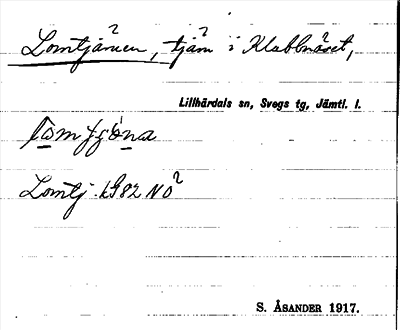 Lomtjärnen, tjärn i Klabbnäset,
Lillhärdals sn, Svegs tg, Jämtl. l.
lomtjø̀na
Lomtj. kG82 NO²
S. ÅSANDER 1917.